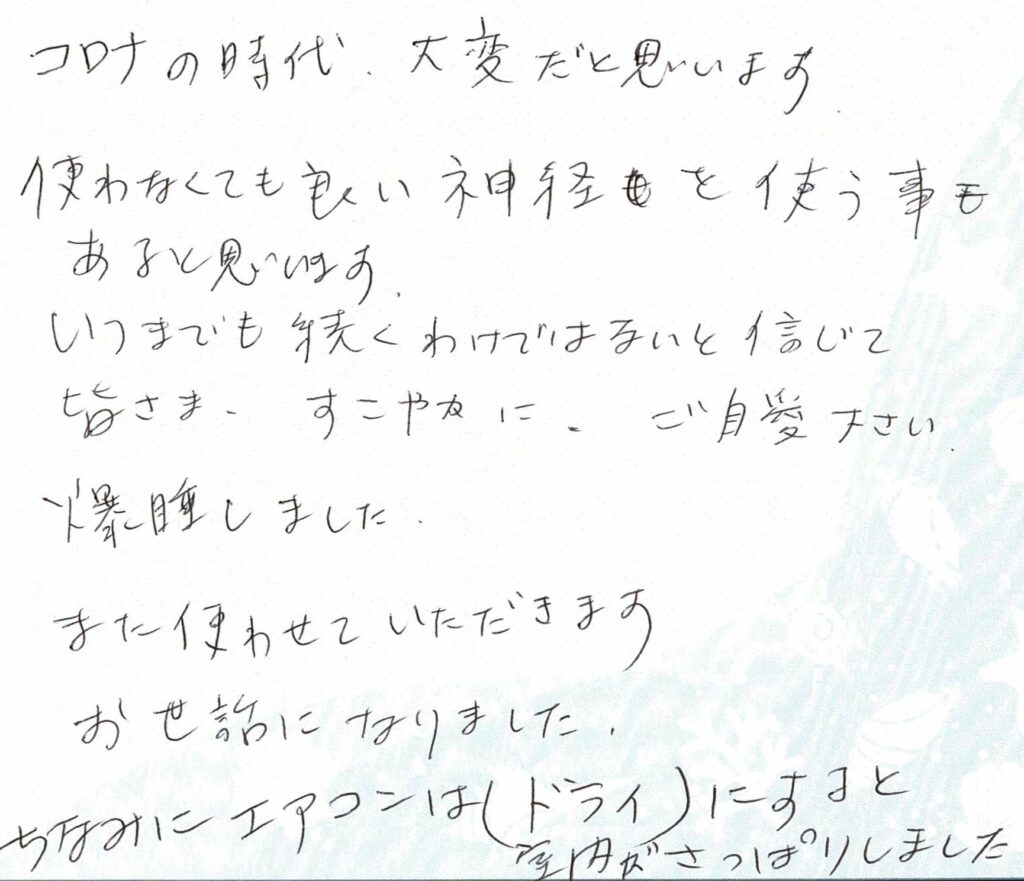 コロナの時代、大変だと思います。
使わなくても良い神経を使う事も
あると思います。
いつまでも続くわけではないと信じて
皆さま、すこやかに。ご自愛下さい。
爆睡しました。
また使わせていただきます
お世話になりました。
ちなみにエアコンは(ドライ)にすると
室内がさっぱりしました